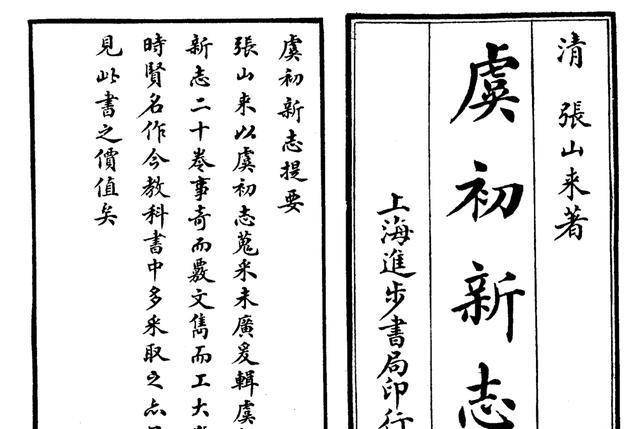 清 張山来著
虞初新志
上海進步書局印行
虞初新志提要
張山来以虞初志蒐采未廣爰輯虞
新志二十卷事奇而覈文雋而工大
時賢名作今教科書中多采取之点
見此書之價值矣